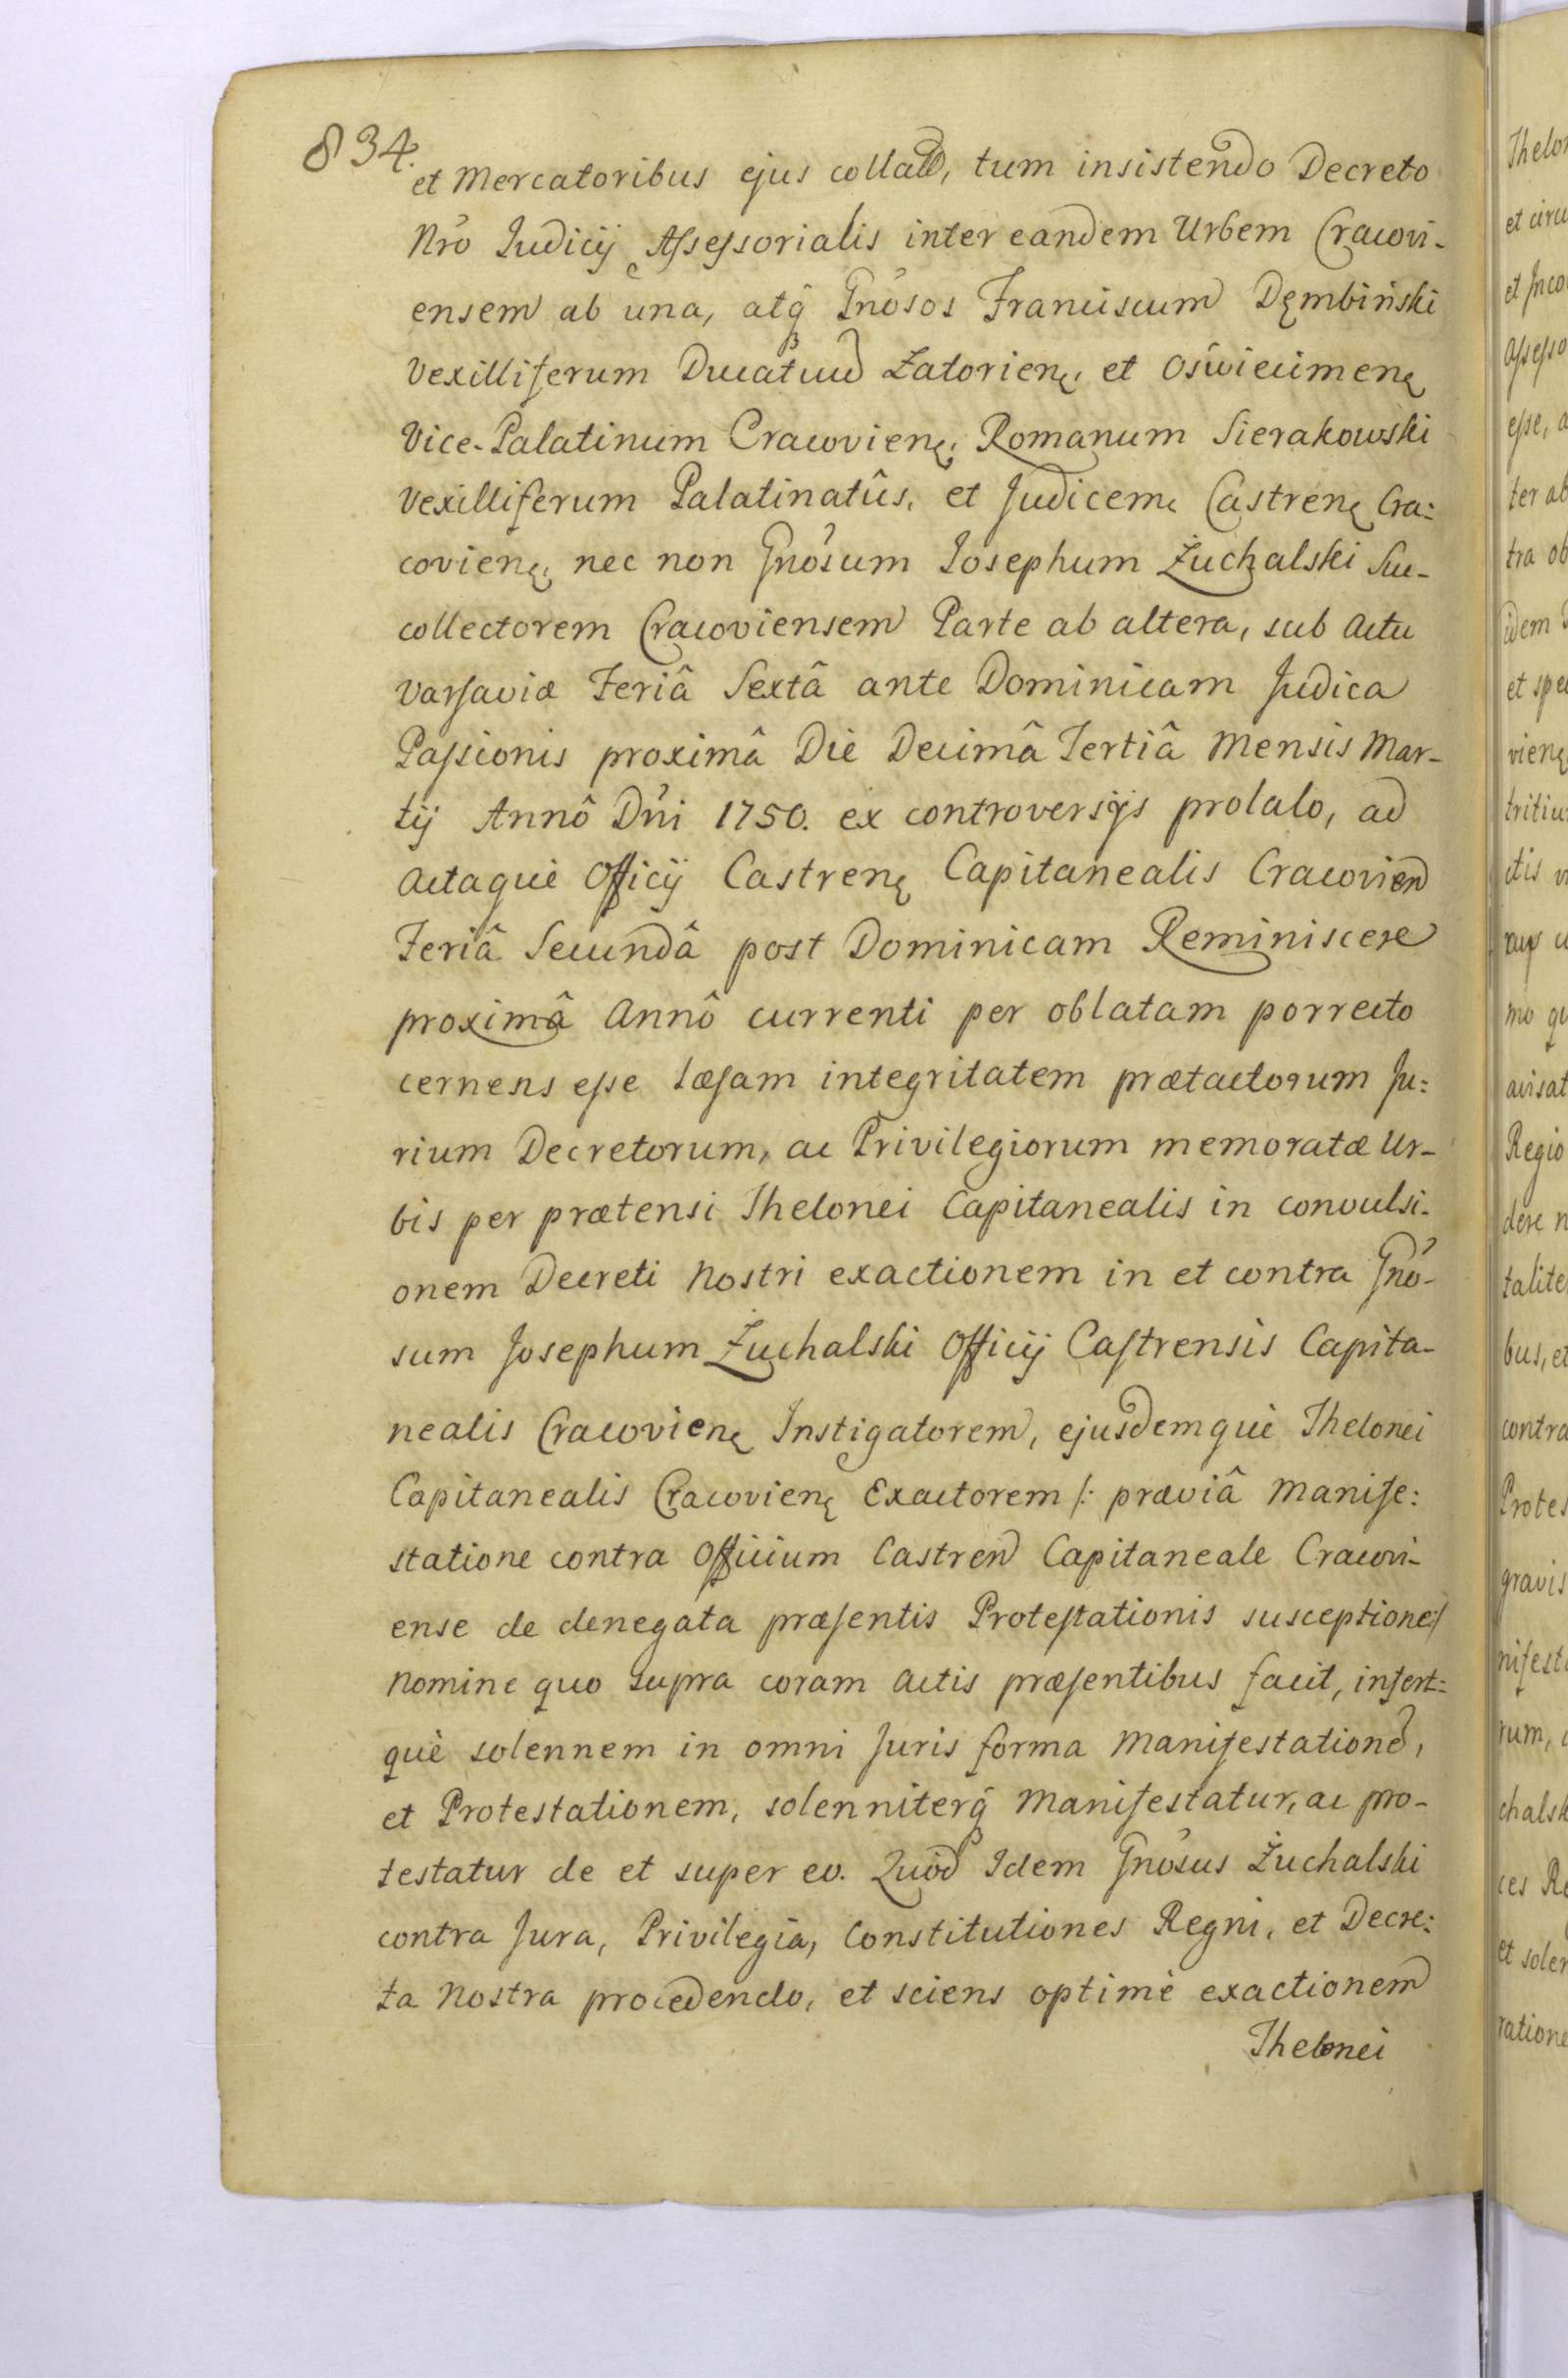 834.
et Mercatoribus ejus collatis, tum insistendo Decreto
Nro Iudicij Assessorialis inter eandem Urbem Cracovi-
ensem ab una, atq́ Gnosos Franciscum Dęmbiński
Vexilliferum Ducatuum Zatorien. et Oświecimen.
Vice-Palatinum Cracovien. Romanum Sierakowski
Vexilliferum Palatinatûs, et Judicem Castren. Cra:
covien. nec non Gnosum Iosephum Żuchalski Suc-
collectorem Cracoviensem Parte ab altera, sub Actu
Varsaviæ Feriâ Sextâ ante Dominicam Judica
Passionis proximâ Die Decimâ Tertiâ Mensis Mar-
tij Annô Dni 1750. ex controversijs prolato, ad
Actaquè Officij Castren. Capitanealis Cracovien
Feriâ Secundâ post Dominicam Reminiscere
proximâ Annô currenti per oblatam porrecto
cernens esse læsam integritatem prætactorum Ju:
rium Decretorum, ac Privilegiorum memoratæ Ur-
bis per prætensi Thelonei Capitanealis in convulsi-
onem Decreti Nostri exactionem in et contra Gno-
sum Josephum Żuchalski Officij Castrensis Capita-
nealis Cracovien. Instigatorem, ejusdemquè Thelonei
Capitanealis Cracovien. Exactorem /: præviâ Manife:
statione contra Officium Castren Capitaneale Cracovi-
ense de denegata præsentis Protestationis susceptione:/
Nomine quo supra coram Actis præsentibus facit, infert:
què solennem in omni Juris forma Manifestationem,
et Protestationem, solenniterq́ Manifestatur, ac pro-
testatur de et super eo. Quòd Idem Gnosus Żuchalski
contra Jura, Privilegia, Constitutiones Regni, et Decre:
ta Nostra procedendo, et sciens optimè exactionem
Thelonei